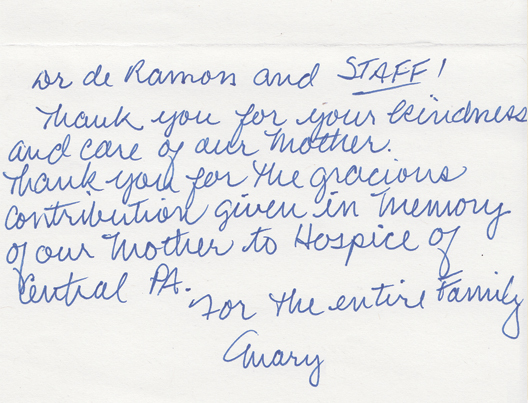 Dr de Ramon and STAFF!
Thank you for your kindness
and care of our Mother.
Thank you for the gracious
contribution given in Memory
of our Mother to Hospice of
Central PA.
For the entire Family
Mary